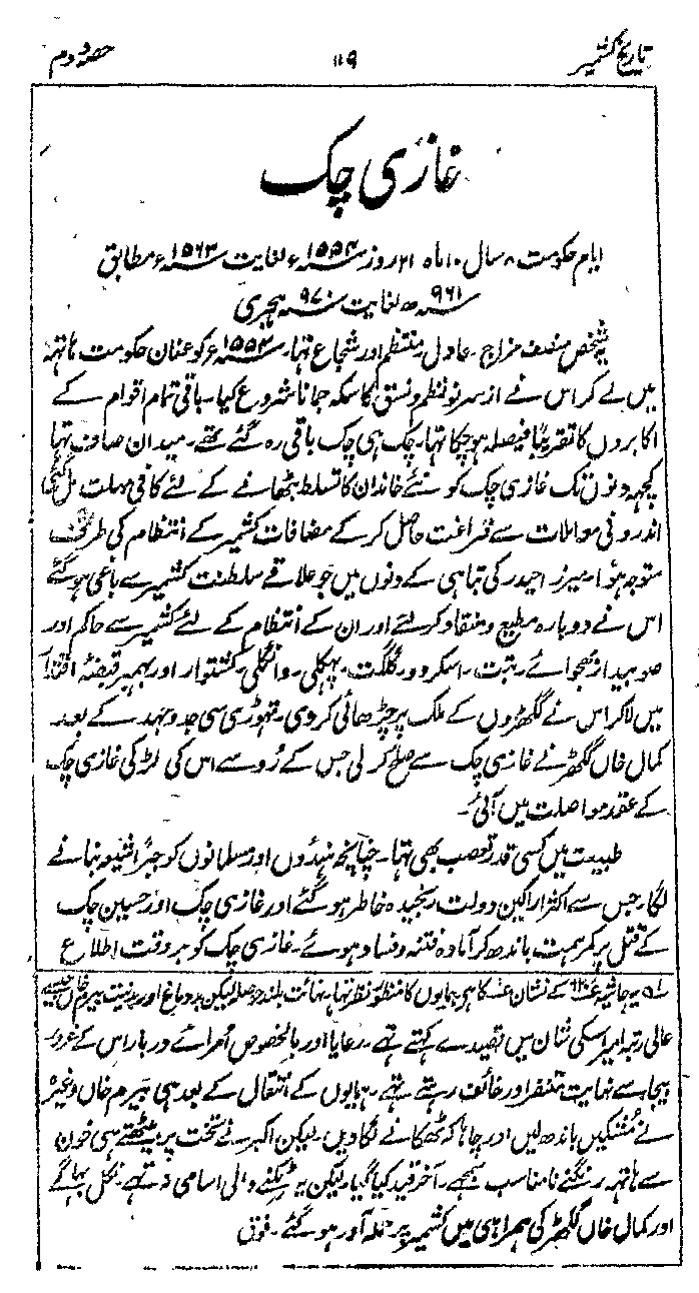 تاریخ کشمیر
۱۱۹
حصہ دوم
غازی چک
ایام حکومت ۸ سال ۱۰ ماہ ۲۱ روز ۱۵۵۴ء لغایت ۱۵۶۳ء مطابق
۹۶۱ھ لغایت ۹۷۰ ہجری
یہ شخص منصف مزاج۔ عادل۔ منتظم اور شجاع تہا۔ ۱۵۵۴ء کو عنان حکومت ہاتہہ
میں لے کر اس نے از سر نو نظم و نسق کا سکہ جمانا شروع کیا۔ باقی تمام اقوام کے
اکابروں کا تقریباً فیصلہ ہو چکا تہا۔ چک ہی چک باقی رہ گئے تھے۔ میدان صاف تہا
کچہہ دنوں تک غازی چک کو نئے خاندان کا تسلط بٹھانے کے لئے کافی مہلت مل گئی
اندرونی معاملات سے فراغت حاصل کر کے مضافات کشمیر کے انتظام کی طرف
متوجہ ہوا۔ میرزا حیدر کی تباہی کے دنوں میں جو علاقے سلطنت کشمیر سے باغی ہو گئے
اس نے دوبارہ مطیع و منقاد کر لئے اور ان کے انتظام کے لئے کشمیر سے حاکم اور
صوبیدار بھجوائے۔ تبت۔ اسکردو۔ گلگت۔ پہکلی۔ وانگلی۔ کشتوار اور بھمبر قبضہ اقتدار
میں لا کر اس نے گکھڑوں کے ملک پر چڑھائی کر دی۔ تہوڑی سی جدوجہد کے بعد
کمال خاں گکھڑ نے غازی چک سے صلح کر لی جس کے رُو سے اس کی لڑکی غازی چک
کے عقد مواصلت میں آئی۔
طبیعت میں کسی قدر تعصب بھی تہا۔ چنانچہ ہندوں اور مسلمانوں کو جبراً شیعہ بنانے
لگا۔ جس سے اکثر اراکین دولت رنجیدہ خاطر ہو گئے اور غازی چک اور حسین چک
کے قتل پر کمر ہمت باندھ کر آمادہ فتنہ و فساد ہوئے۔ غازی چک کو بروقت اطلاع
یہ حاشیہ کے نشان کا ہی ہمایوں کا منظور نظر تہا۔ نہائت بلند حوصلہ لیکن بد دماغ اور بیرم خاں جیسے
عالی رتبہ امیر اسکی شان میں قصیدے کہتے تہے۔ رعایا اور بالخصوص اُمرائے دربار اس کے غرور
بیجا سے نہایت متنفر اور خائف رہتے تہے۔ ہمایوں کے انتقال کے بعد ہی بیرم خاں وغیرہ
نے مُشکیں باندھ لیں اور چاہا کہ ٹھکانے لگا دیں۔ لیکن اکبر نے تخت پر بیٹھتے ہی خون
سے ہاتہہ رنگنے نامناسب سمجھے۔ آخر قید کیا گیا۔ لیکن یہ ٹکنے والی اسامی نہ تہے۔ نکل بہاگے
اور کمال خاں گکھڑ کی ہمراہی میں کشمیر پر حملہ آور ہو گئے۔ فوق